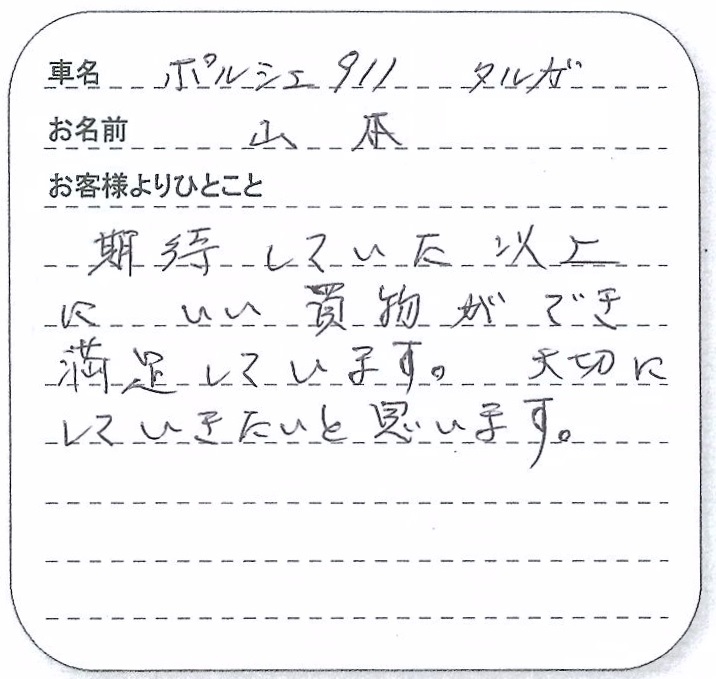 車名 ポルシェ911 タルガ
お名前 山本
お客様よりひとこと
期待していた以上
に いい買物ができ
満足しています。 大切に
していきたいと思います。